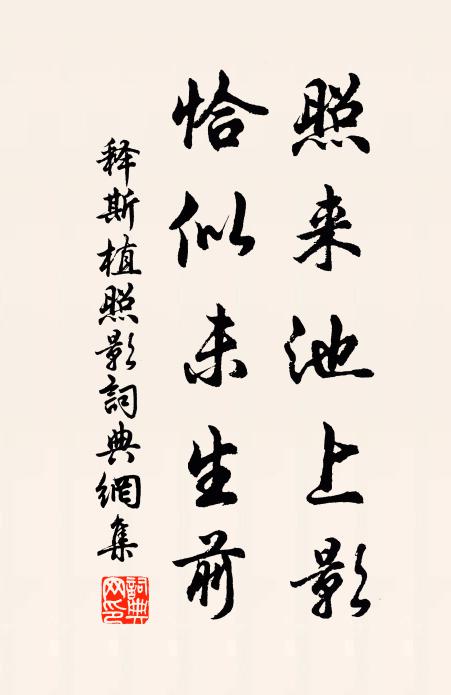 照来池上影
恰似未生前
释斯植照影詞典網集
詞典网印